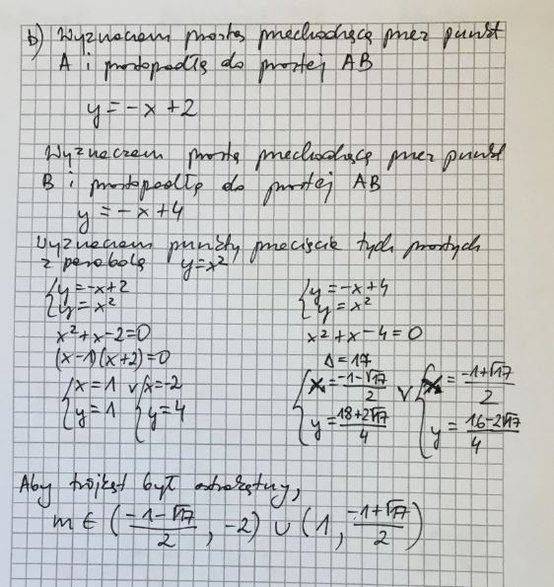 b) Wyznaczam prostą przechodzącą przez punkt
A i prostopadłą do prostej AB
y = -x + 2
Wyznaczam prostą przechodzącą przez punkt
B i prostopadłą do prostej AB
y = -x + 4
Wyznaczam punkty przecięcia tych prostych
z parabolą y = x²
{y = -x + 2
{y = x²
x² + x - 2 = 0
(x - 1)(x + 2) = 0
{x = 1 ∨ {x = -2
{y = 1 {y = 4
{y = -x + 4
{y = x²
x² + x - 4 = 0
Δ = 17
{x = (-1 - √17)/2 ∨ {x = (-1 + √17)/2
{y = (18 + 2√17)/4 {y = (16 - 2√17)/4
Aby trójkąt był ostrokątny,
m ∈ ((-1 - √17)/2, -2) ∪ (1, (-1 + √17)/2)